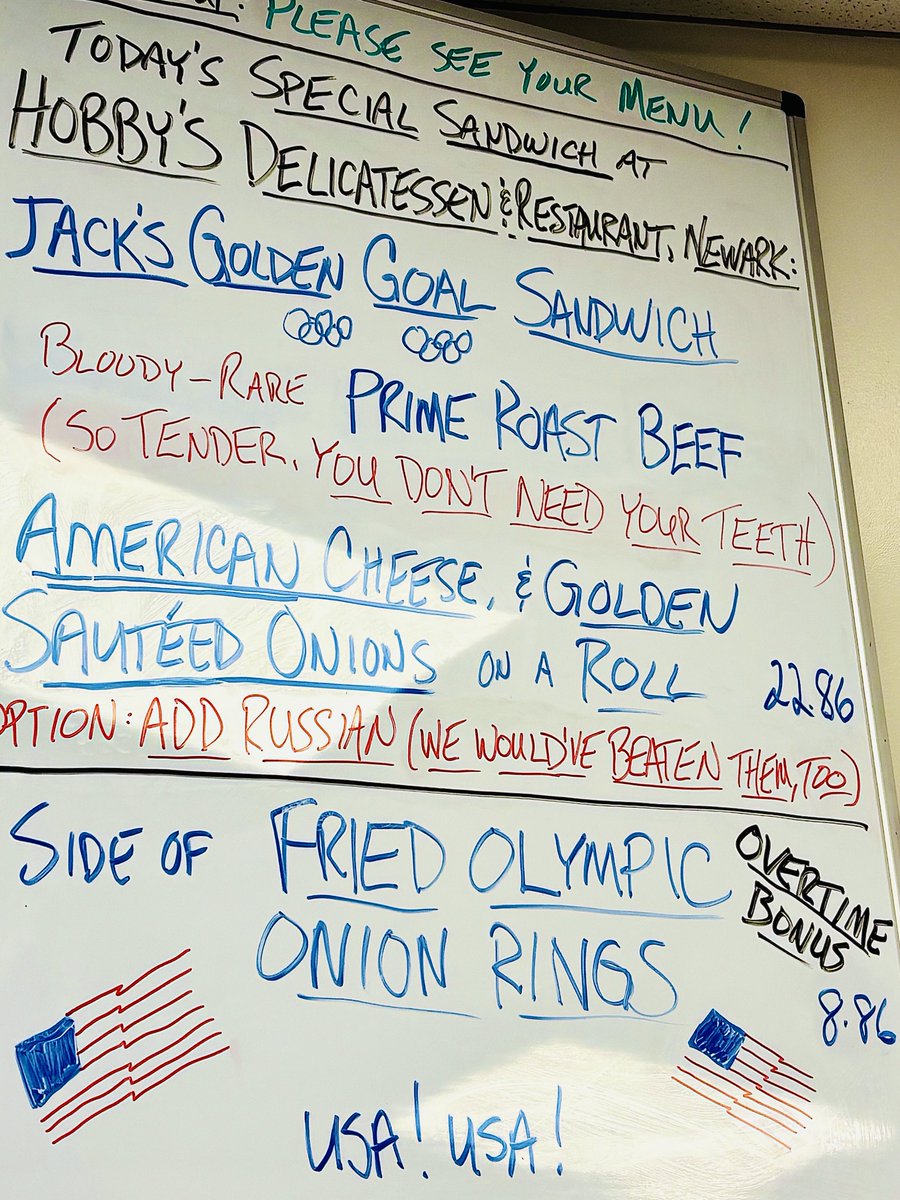 PLEASE SEE YOUR MENU!
TODAY'S SPECIAL SANDWICH AT
HOBBY'S DELICATESSEN & RESTAURANT, NEWARK:
JACK'S GOLDEN GOAL SANDWICH
BLOODY-RARE PRIME ROAST BEEF
(SO TENDER, YOU DON'T NEED YOUR TEETH)
AMERICAN CHEESE, & GOLDEN
SAUTÉED ONIONS ON A ROLL 22.86
OPTION: ADD RUSSIAN (WE WOULD'VE BEATEN THEM, TOO)
SIDE OF FRIED OLYMPIC
ONION RINGS
OVERTIME
BONUS
8.86
USA! USA!